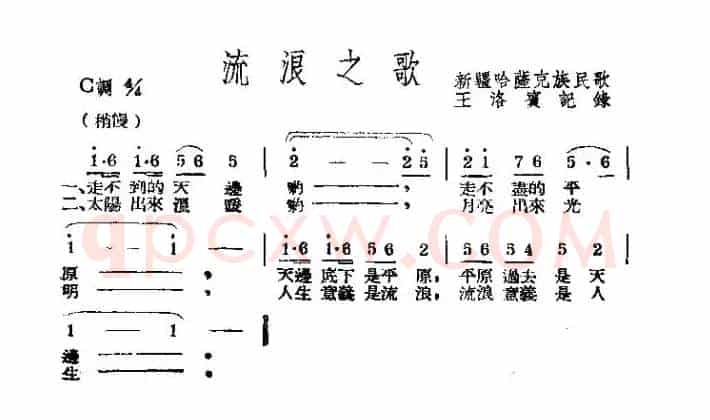 流浪之歌
新疆哈薩克族民歌
C調 4/4
王洛賓記錄
(稍慢)
1·6 1·6 56 5 | 2 — — 25 | 21 76 5·6
一、走不到的天邊喲————，走不盡的平
二、太陽出來溫暖喲————，月亮出來光
1 — — 1 — | 1·6 1·6 56 2 | 56 54 5 2
原————，天邊底下是平原，平原過去是天
明————，人生意義是流浪，流浪意義是人
1 — — 1 — |
邊————。
生————。
qpcxw.com